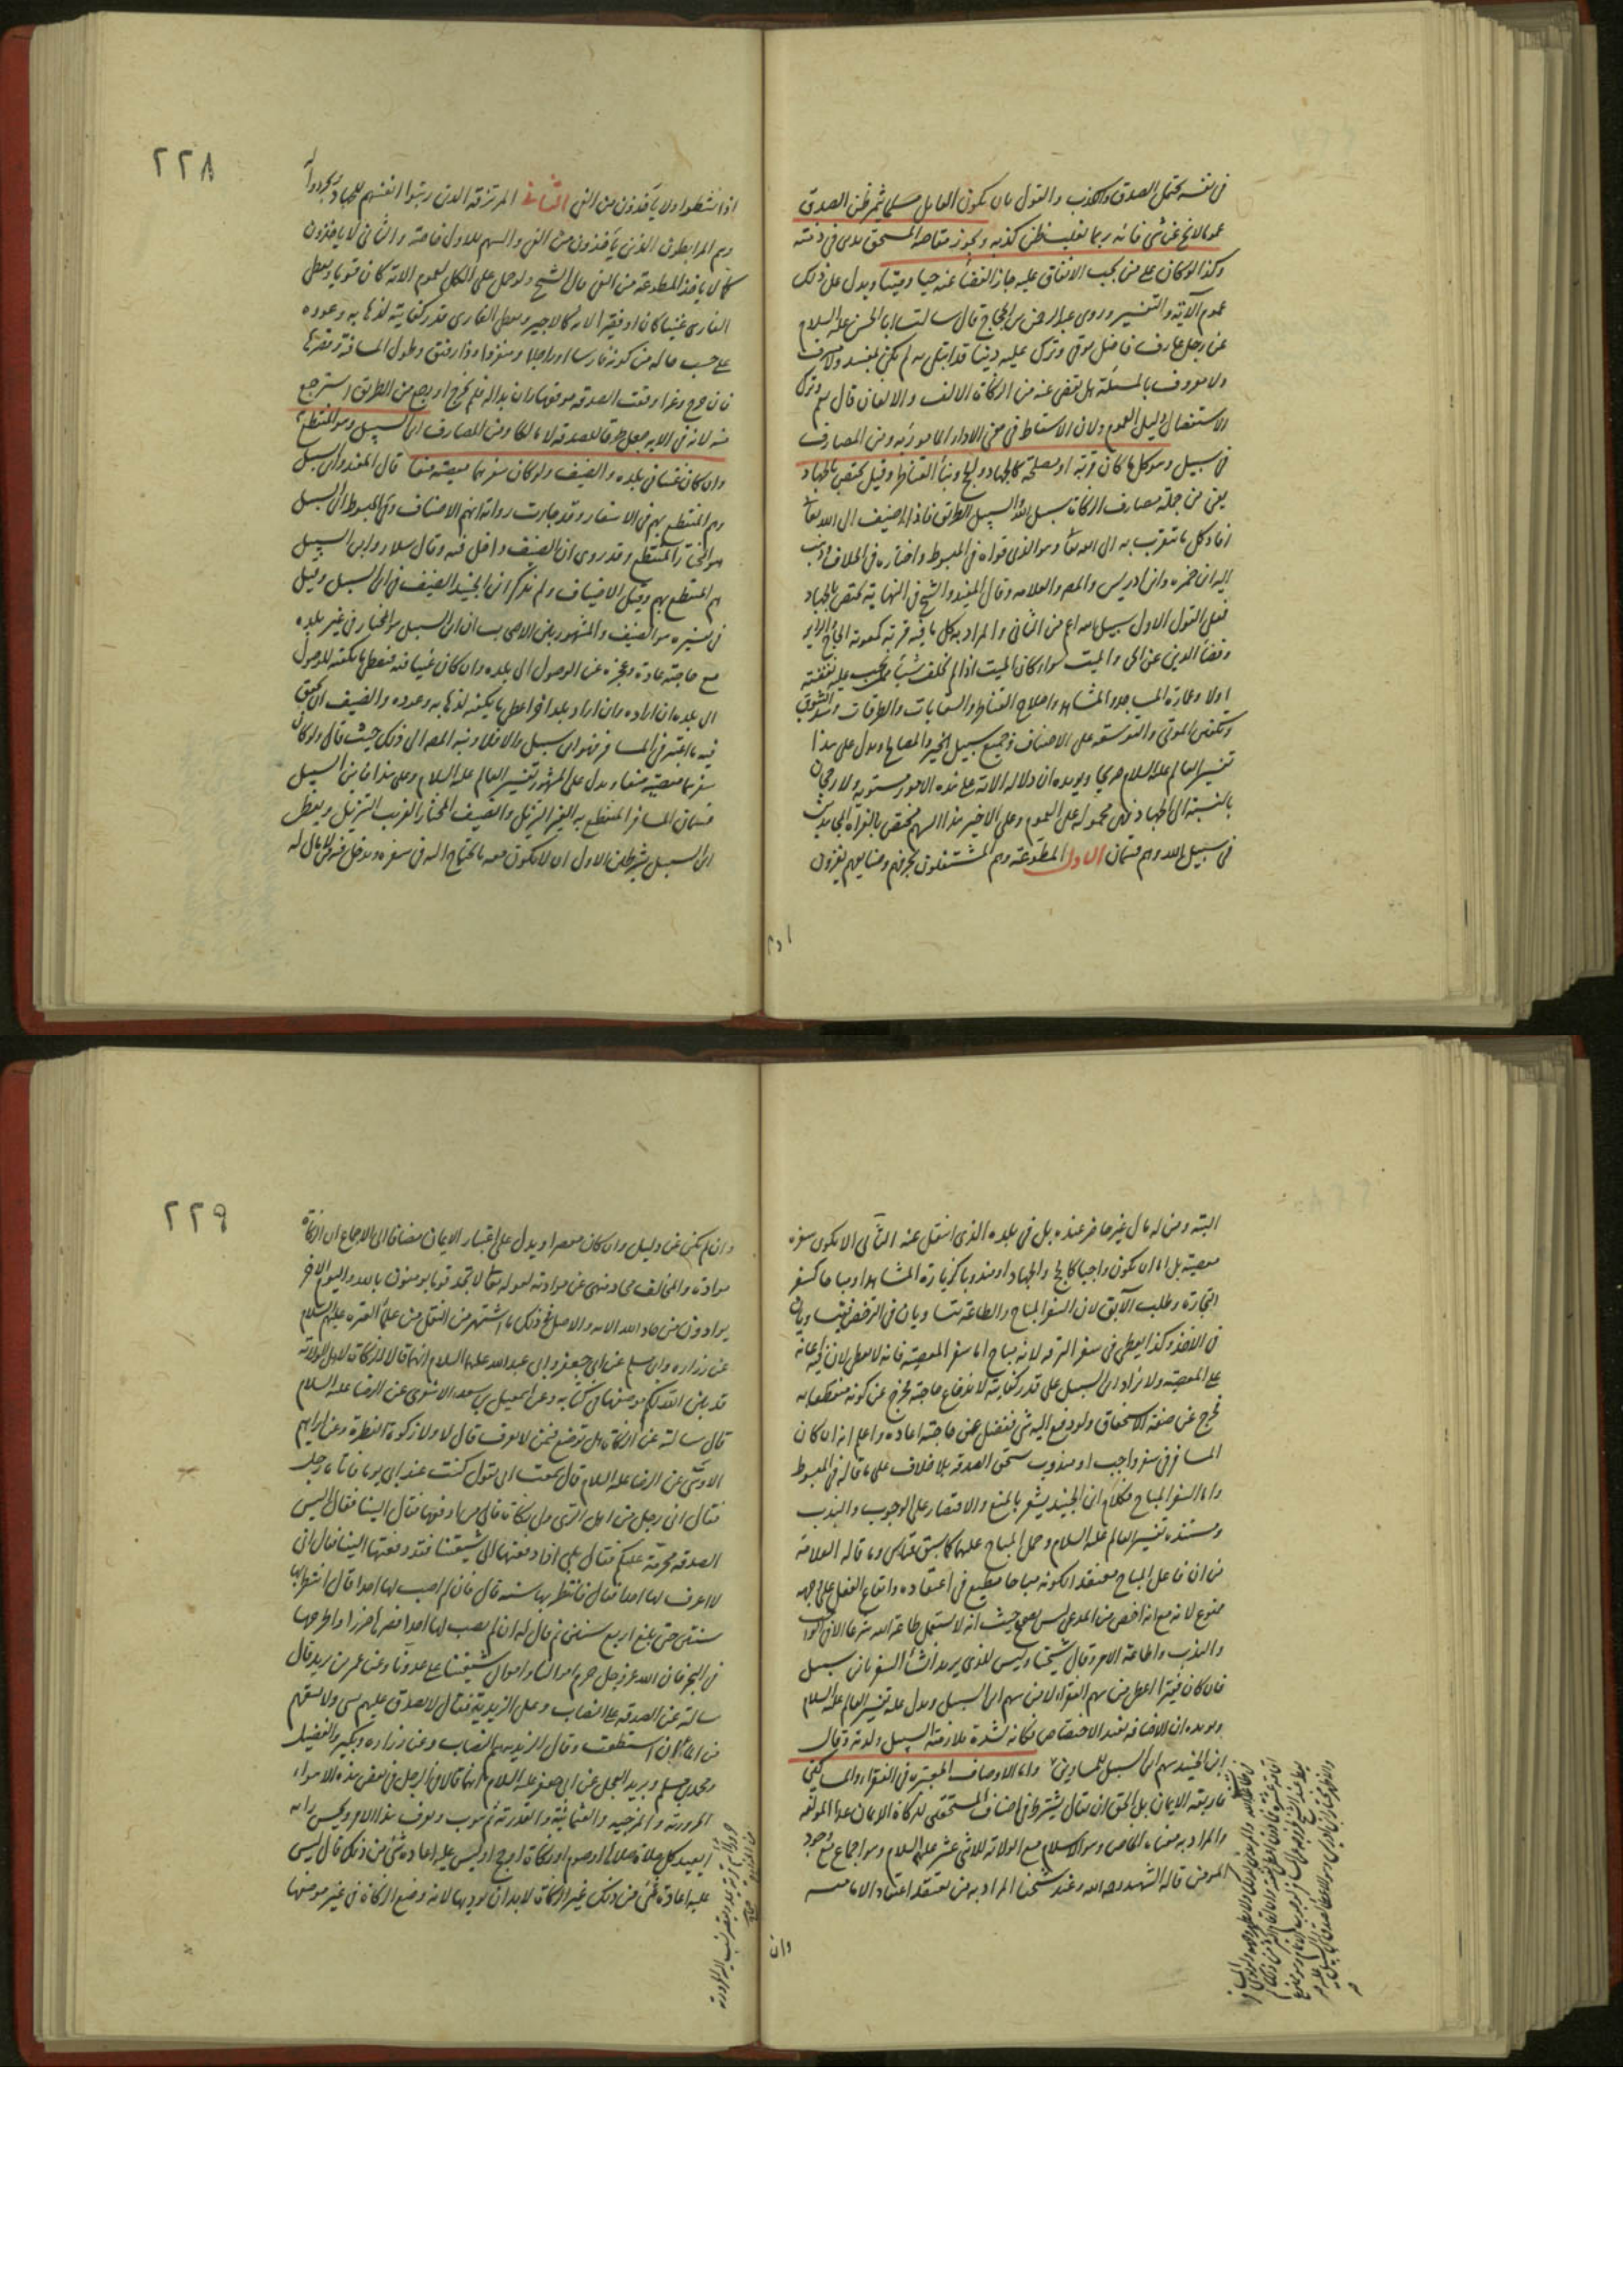 في نفسه يحتمل الصدق والكذب والقول بان يكون القايل مسلما يثمر ظن الصدق
عموما لا يخ عن شيء فانه ربما يغلب ظن كذبه ويجوز مقاصة المستحق بدين في ذمته
وكذا لو كان على من يجب الانفاق عليه جاز القضاء عنه حيا وميتا ويدل على ذلك
عموم الآية والتفسير وروى عبد الرحمن بن الحجاج قال سالت ابا الحسن عليه السلام
عن رجل عارف فاضل توفي وترك عليه دينا قد ابتلي به لم يكن بمفسد ولا مسرف
ولا معروف بالمسئلة هل يقضى عنه من الزكاة الالف والالفان قال نعم وترك
الاستفصال دليل العموم ولان الاسقاط في معنى الاداء المامور به ومن المصارف
في سبيل وهو كل ما كان قربة او مصلحة كالجهاد والحج وبناء القناطر وقيل يختص بالجهاد
يعني من جملة مصارف الزكاة سبيل الله والسبيل الطريق فاذا اضيف الى الله تعالى
افاد كل ما يتقرب به الى الله تعالى وهو الذي قواه في المبسوط واختاره في الخلاف وذهب
اليه ابن حمزه وابن ادريس والمص والعلامه وقال المفيد والشيخ في النهاية يختص بالجهاد
فعلى القول الاول سبيل الله اعم من الثاني والمراد به كل ما فيه قربة كمعونة الحاج والزاير
وقضاء الدين عن الحي والميت سواء كان الميت اذا لم يخلف شيئا ممن يجب عليه نفقته
اولا وعمارة المساجد والمشاهد واصلاح القناطر والسقايات والطرقات وسد البثوق
وتكفين الموتى والتوسعه على الاصناف وجميع سبيل الخير والمصالح ويدل على هذا
تفسير العالم عليه السلام صريحا ويؤيده ان دلالة الاية على هذه الامور مستوية ولا رجحان
بالنسبة الى الجهاد فهي محمولة على العموم وعلى الاخير هذا السهم يختص بالغزاة المجاهدين
في سبيل الله وهم قسمان الاول المطوعة وهم المشتغلون بحرفهم وصنايعهم يغزون
اذا
٢٢٨
اذا نشطوا ولا ياخذون من الفيء الثاني المرتزقة الذين رتبوا انفسهم للجهاد وتجردوا
وهم المرابطون الذين ياخذون من الفيء والسهم للاول خاصة والثاني لا ياخذون
كما لا ياخذ المطوعة من الفيء قال الشيخ ولو حمل على الكل لعموم الاية كان قويا ويعطى
الغازي غنيا كان او فقيرا لانه كالاجير ويعطى الغازي قدر كفايته لذهابه وعوده
على حسب حاله من كونه فارسا او راجلا ومنفردا وذا رفيق وطول المسافة وقصرها
فان خرج وغزا وقعت الصدقه موقعها وان بدا له فلم يخرج او رجع من الطريق استرجع
منه لانه في الايه جعل طرفا للصدقه لا مالكا ومن المصارف ابن السبيل وهو المنقطع به
وان كان غنيا في بلده والضيف ولو كان سفرهما معصية منعا قال المفيد وابن السبيل
وهم المنقطع بهم في الاسفار وقد جاءت رواية انهم الاضياف وفي المبسوط ابن السبيل
هو المجتاز المنقطع وقد روي ان الضيف داخل فيه وقال سلار وابن السبيل
هم المنقطع بهم وقيل الاضياف ولم يذكر ابن الجنيد الضيف في ابن السبيل وقيل
في تفسيره هو الضيف والمشهور بين الاصحاب ان ابن السبيل هو المجتاز في غير بلده
مع حاجته عادة وعجزه عن الوصول الى بلده وان كان غنيا فيه فيعطى ما يكفيه للوصول
الى بلده ان اراده وان اراد بلدا اخر اعطي ما يكفيه لذهابه وعوده والضيف ان تحقق
فيه ما اعتبر في المسافر فهو ابن سبيل والا فلا ونبه المص الى ذلك حيث قال ولو كان
سفرهما معصية منعا ويدل على المشهور تفسير العالم عليه السلام وعلى هذا فابن السبيل
قسمان المسافر المنقطع به البعيد النزيل والضيف المجتاز القريب النزيل ويعطى
ابن السبيل بشرطين الاول ان لا يكون معه ما يحتاج اليه في سفره ويدخل فيه من لا مال له
البته ومن له مال غير حاضر عنده بل في بلده الذي انتقل عنه الثاني الا يكون سفره
معصية بل اما ان يكون واجبا كالحج والجهاد او مندوبا كزيارة المشاهد او مباحا كسفر
التجارة وطلب الآبق لان السفر المباح والطاعة يتساويان في الترخص فيتساويان
في الاخذ وكذا يعطى في سفر النزهه لانه مباح اما سفر المعصية فانه لا يعطى لان فيه اعانة
على المعصية ولا يزاد ابن السبيل على قدر كفايته لاندفاع حاجته فيخرج عن كونه منقطعا به
فخرج عن صفة الاستحقاق ولو دفع اليه شيء ففضل عن حاجته اعاده واعلم انه ان كان
المسافر في سفر واجب او مندوب استحق الصدقه بلا خلاف على ما قاله في المبسوط
واما السفر المباح فكلام ابن الجنيد يشعر بالمنع والاقتصار على الوجوب والندب
ومستنده تفسير العالم عليه السلام وحمل المباح عليهما كما سبق قياس وما قاله العلامة
من ان فاعل المباح معتقدا لكونه مباحا مطيع في اعتقاده وايقاع الفعل على وجهه
ممنوع لانه مع انه اخص من المدعى ليس بصحيح حيث انه لا يستعمل طاعة الله شرعا الا في الواجب
والندب واطاعة الامر وقال شيخنا وليس للذي يريد انشاء السفر بابن سبيل
فان كان فقيرا اعطي من سهم الفقراء لا من سهم ابن السبيل ويدل عليه تفسير العالم عليه السلام
ويؤيده ان الاضافه تفيد الاختصاص فكانه لشدة ملازمته السبيل ولدته وقال
ابن الجنيد سهم ابن السبيل للمسافرين واما الاوصاف المعتبره في الفقراء والمساكين
فاربعه الايمان بل الحق ان يقال يشترط في اصناف المستحقين للزكاة الايمان عدا المولفه
والمراد به معناه الخاص وهو الاسلام مع الولاية للاثني عشر عليهم السلام وهو اجماع متوجود
الموفق قاله الشهيد رحمه الله وعند شيخنا المراد به من يعتقد اعتقاد الامامية
وان
٢٢٩
وان لم يكن عن دليل وان كان مقصرا ويدل على اعتبار الايمان مضافا الى الاجماع ان الزكاة
موادة والمخالف محاد منهي عن موادته لقوله تعالى لا تجد قوما يؤمنون بالله واليوم الاخر
يوادون من حاد الله الايه والاصل في ذلك ما اشتهر من النقل من علماء العترة عليهم السلام
عن زراره وابن مسلم عن ابي جعفر وابي عبد الله عليهما السلام انهما قالا الزكاة لاهل الولاية
قد بين الله لكم موضعها في كتابه وعن اسمعيل بن سعد الاشعري عن الرضا عليه السلام
قال سالته عن الزكاة هل توضع فيمن لا يعرف قال لا ولا زكوة الفطرة وعن ابراهيم
الاوسي عن الرضا عليه السلام قال سمعت ابي يقول كنت عند ابي يوما فاتاه رجل
فقال اني رجل من اهل الري ولي زكاة فالى من ادفعها فقال الينا فقال اليس
الصدقه محرمة عليكم فقال بلى اذا دفعتها الى شيعتنا فقد دفعتها الينا فقال اني
لا اعرف لها احدا فقال فانتظر بها سنه قال فان لم اصب لها احدا قال انتظر بها
سنتين حتى بلغ اربع سنين ثم قال له ان لم تصب لها احدا فصرها صررا واطرحها
في البحر فان الله عز وجل حرم اموالنا واموال شيعتنا على عدونا وعن عمر بن يزيد قال
سالته عن الصدقه على النصاب وعلى الزيدية فقال لا تصدق عليهم بشيء ولا تسقهم
من الماء ان استطعت وقال الزيديه هم النصاب وعن زراره وبكير والفضيل
ومحمد بن مسلم وبريد العجلي عن ابي جعفر عليه السلام انهما قالا في الرجل في بعض هذه الاهواء
الحرورية والمرجيه والعثمانية والقدرية ثم يتوب ويعرف هذا الامر ويحسن رايه
ايعيد كل صلاة صلاها او صوم او زكاة او حج او ليس عليه اعادة شيء من ذلك قال ليس
عليه اعادة شيء من ذلك غير الزكاة لا بد ان يؤديها لانه وضع الزكاة في غير موضعها